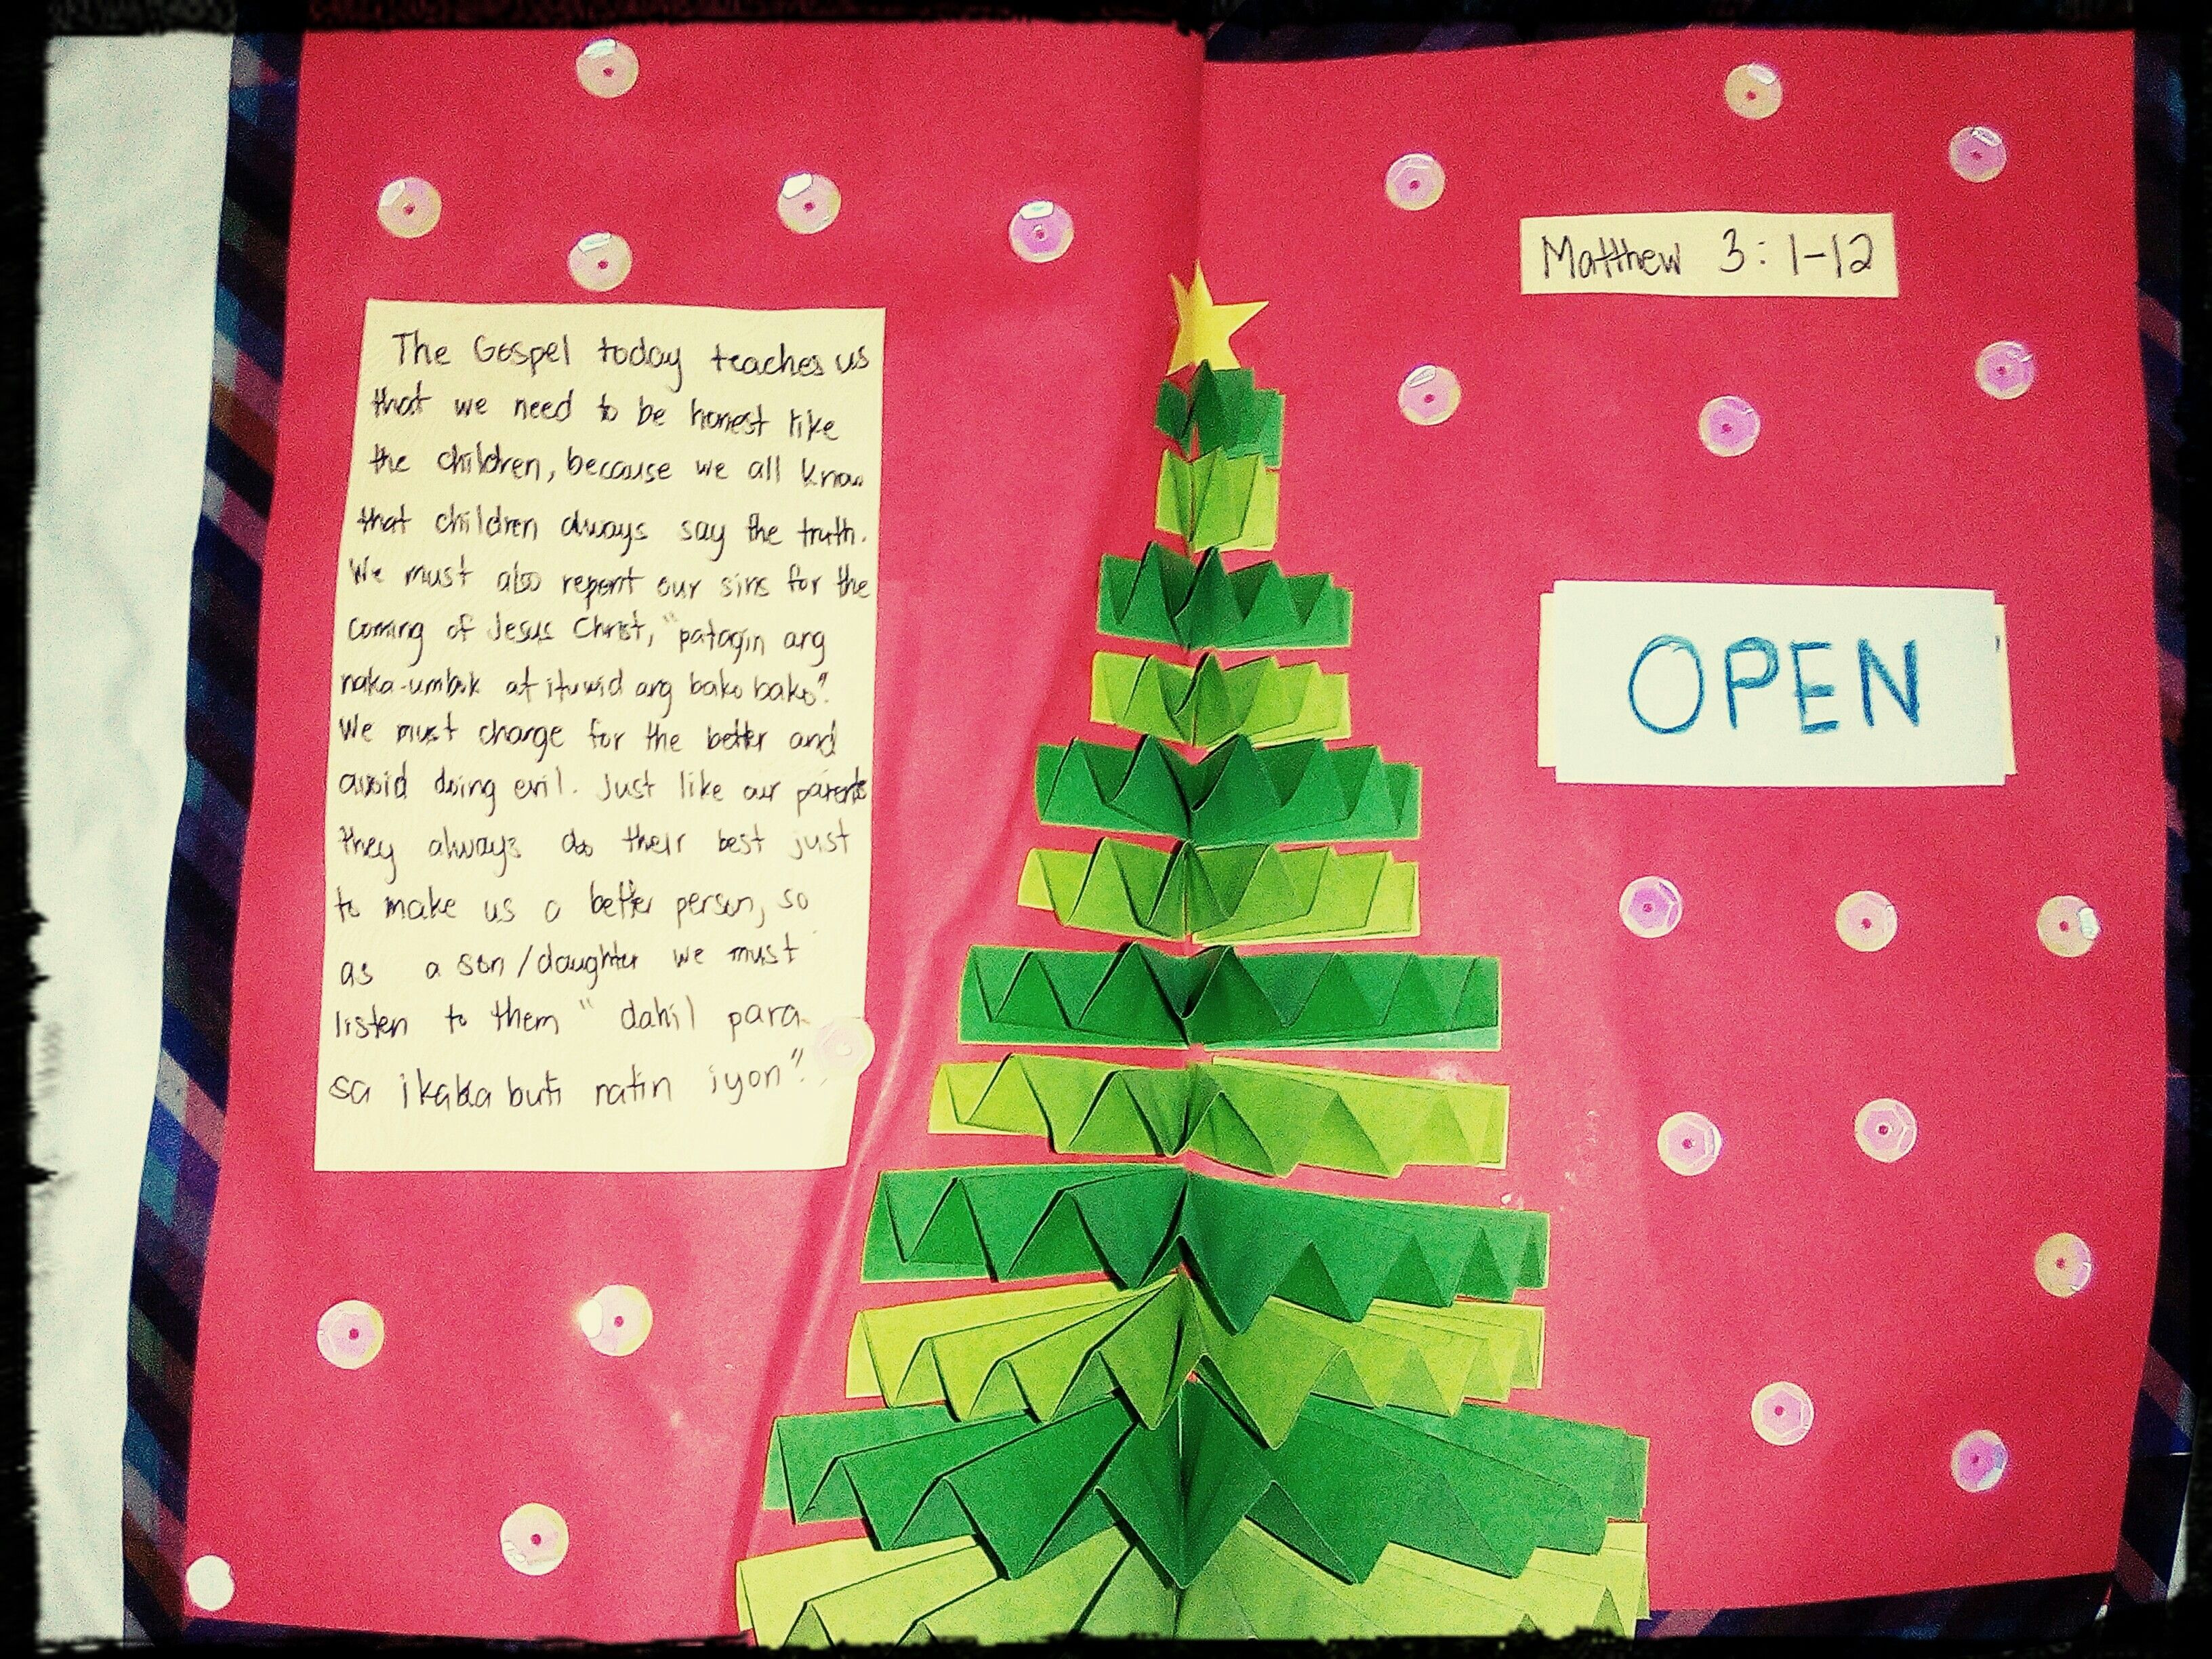 The Gospel today teaches us
that we need to be honest like
the children, because we all know
that children always say the truth.
We must also repent our sins for the
coming of Jesus Christ, "patagin ang
naka-umbok at ituwid ang bako bako".
We must change for the better and
avoid doing evil. Just like our parents
they always do their best just
to make us a better person, so
as a son/daughter we must
listen to them " dahil para
sa ikabubuti natin iyon".
Matthew 3:1-12
OPEN